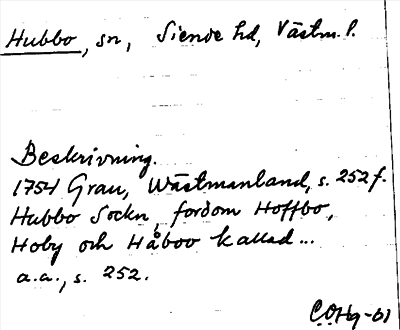 Hubbo, sn, Siende hd, Västm. l.
Beskrivning.
1754 Grau, Wästmanland, s. 252 f.
Hubbo Sockn, fordom Hoffbo,
Hoby och Håboo kallad...
a.a., s. 252.
C.O.Hg-61